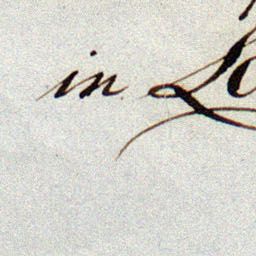 in Lo